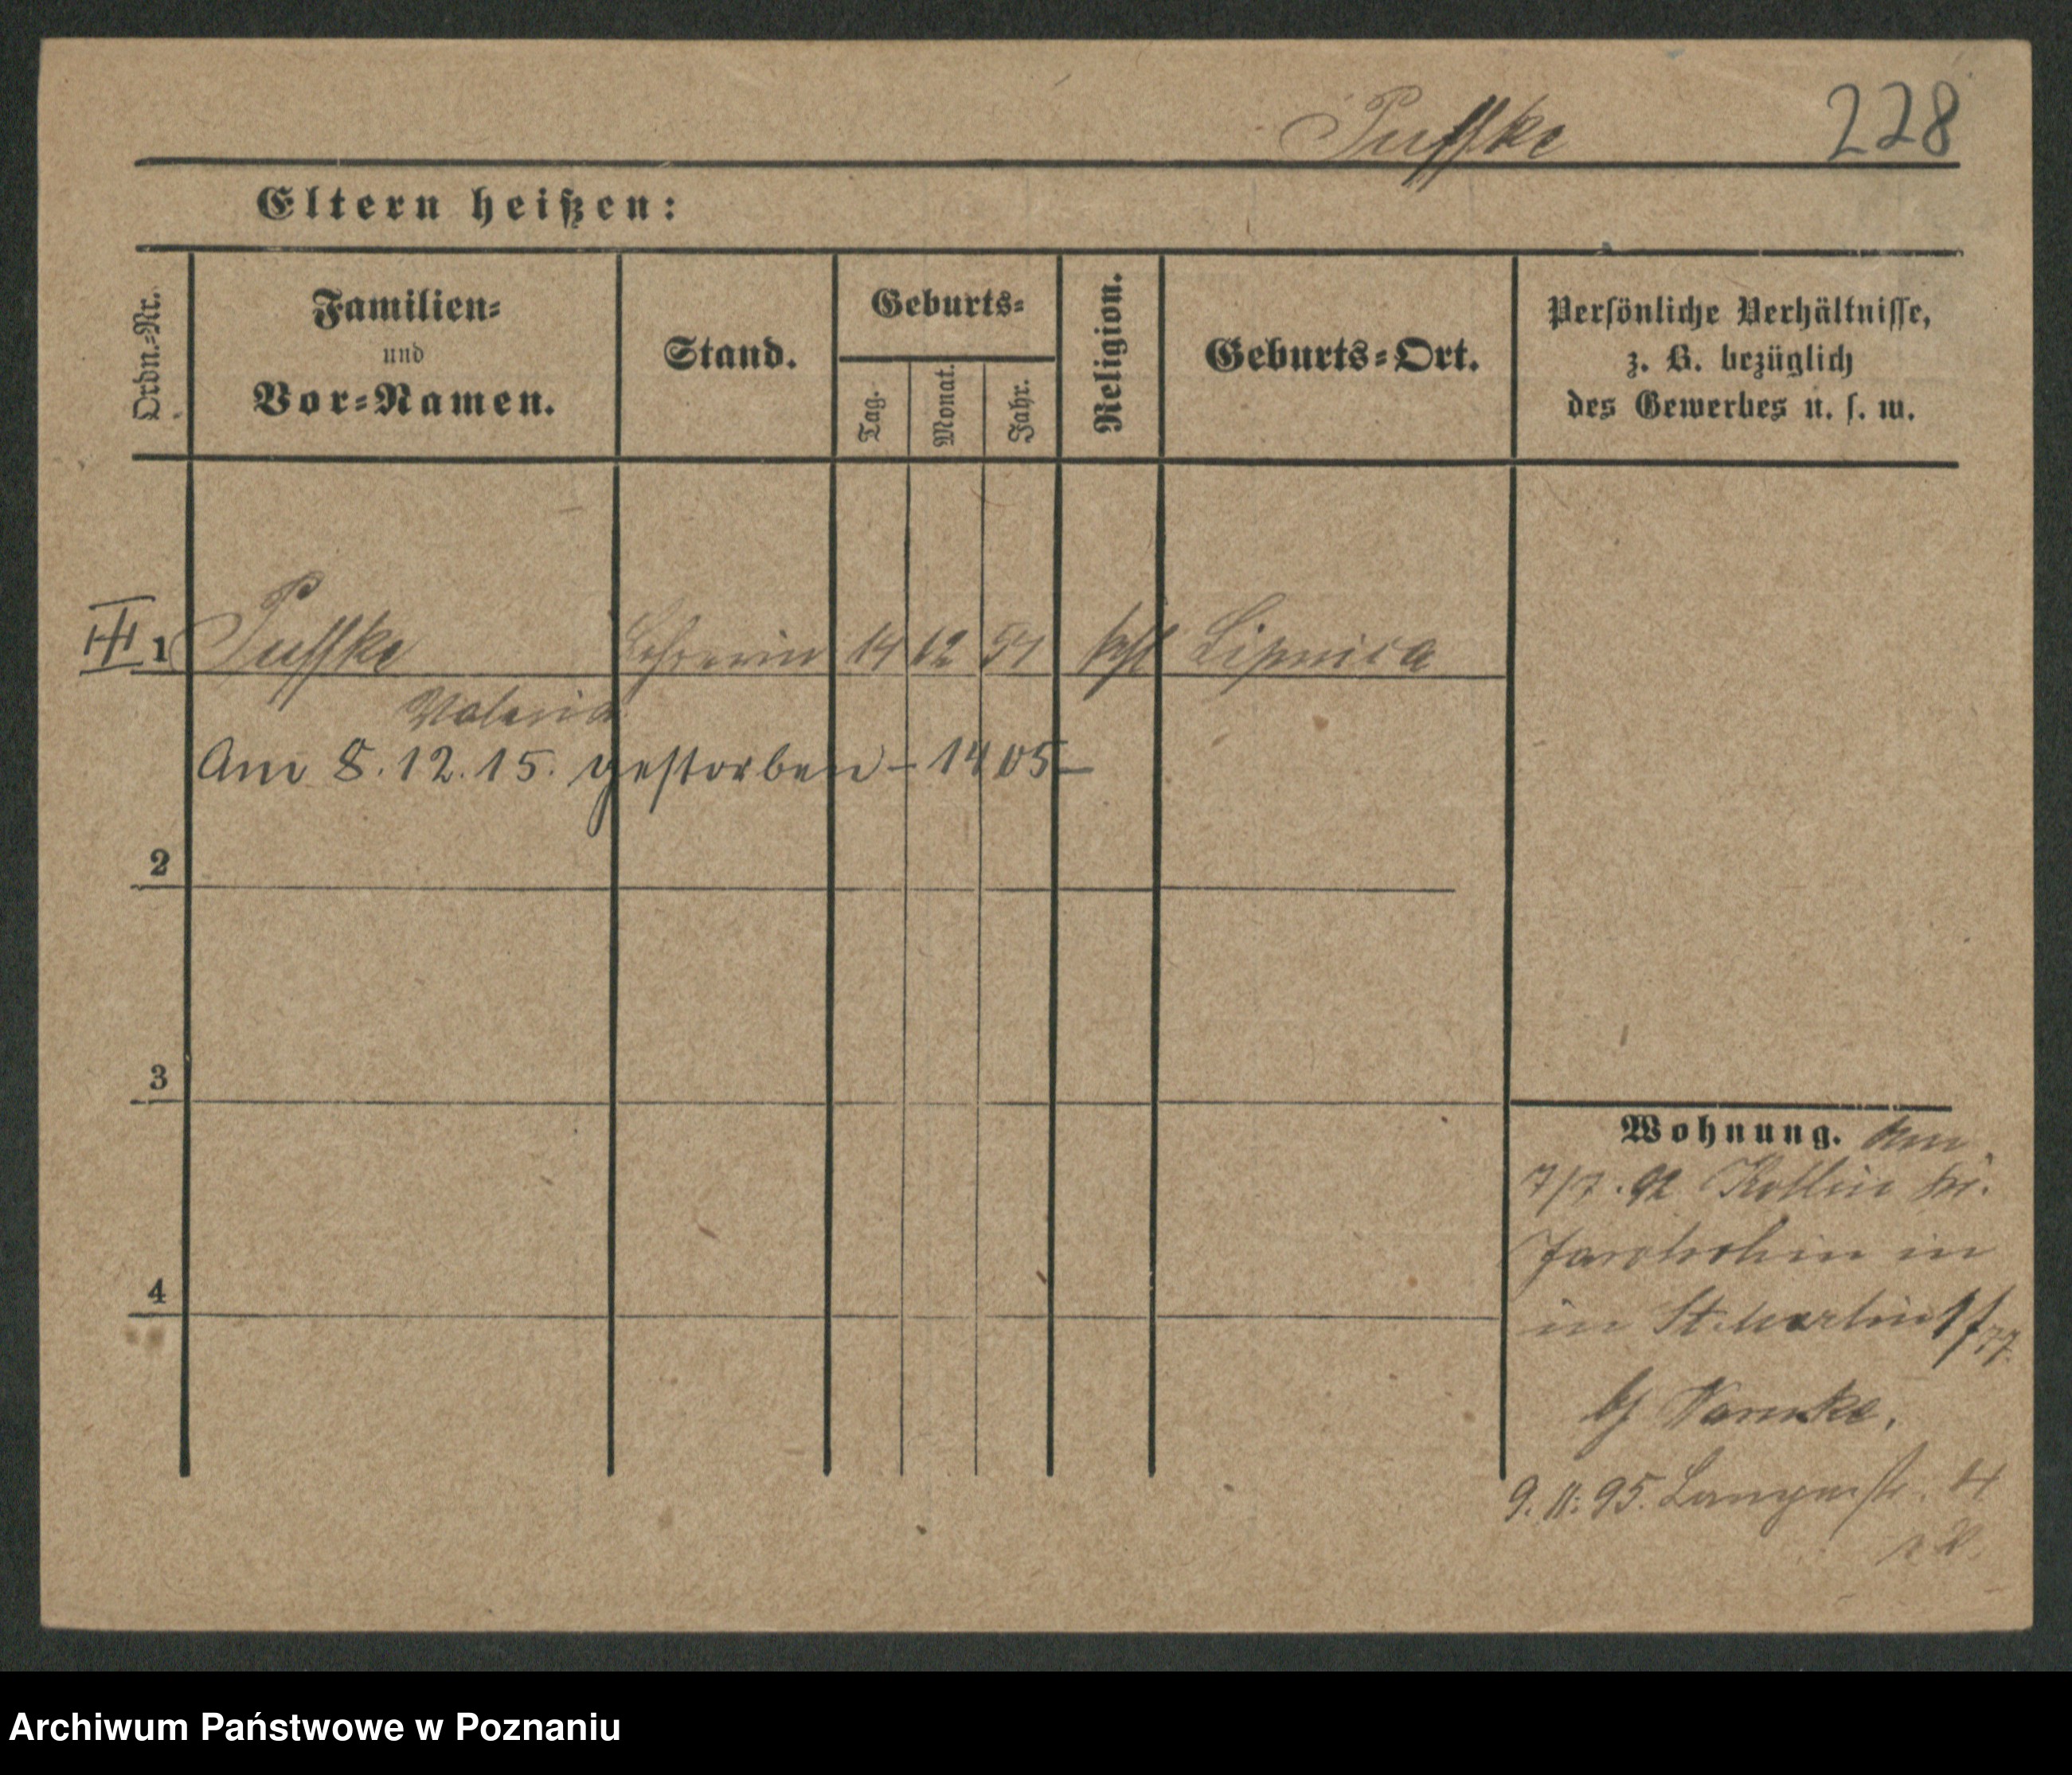 Puffke 228
Eltern heißen:
Ordn.-Nr. Familien- und Vor-Namen. Stand. Geburts- Tag. Monat. Jahr. Religion. Geburts-Ort. Persönliche Verhältnisse, z. B. bezüglich des Gewerbes u. s. w.
III 1 Puffke Lehrerin 14 12 54 kthl Lipnica
Valeria
Am 8.12.15. gestorben - 1405 -
2
3
4
Wohnung.
7/7.92 Kotlin Kr.
Jarotschin in
in St. Martin
Wamke,
9.11.95. Langestr. 4
Archiwum Państwowe w Poznaniu